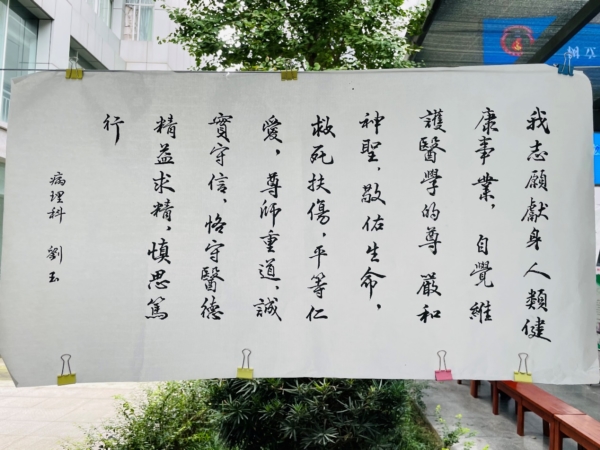 我志願獻身人類健
康事業，自覺維
護醫學的尊嚴和
神聖，敬佑生命，
救死扶傷，平等仁
愛，尊師重道、誠
實守信、恪守醫德
精益求精，慎思篤
行
病理科 劉玉